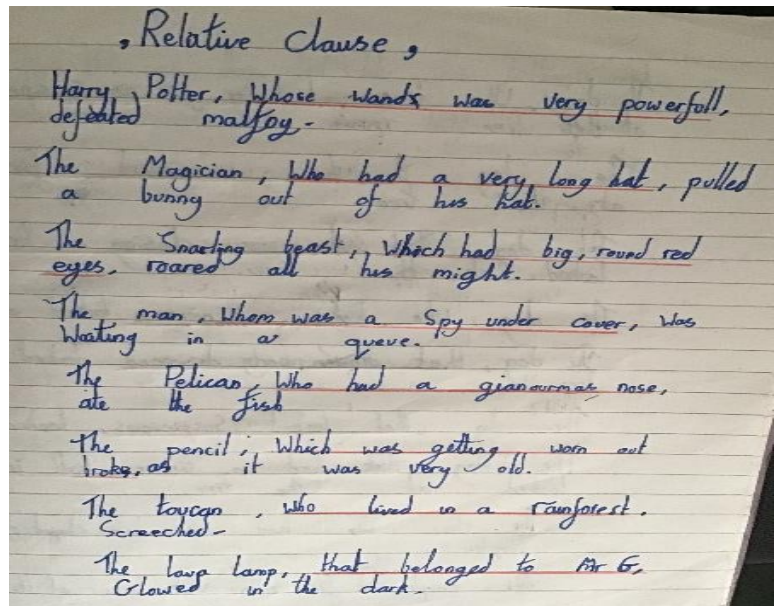 , Relative Clause ,
Harry Potter, Whose wands was very powerfull,
defeated malfoy.
The Magician, Who had a very long hat, pulled
a bunny out of his hat.
The Snarling beast, which had big, round red
eyes, roared all his might.
The man, Whom was a Spy under cover, was
Waiting in a queue.
The Pelican, Who had a gianourmas nose,
ate the fish
The pencil, Which was getting worn out
broke, as it was very old.
The toucan, who lived in a rainforest.
Screeched.
The lava lamp, that belonged to Mr G,
Glowed in the dark.